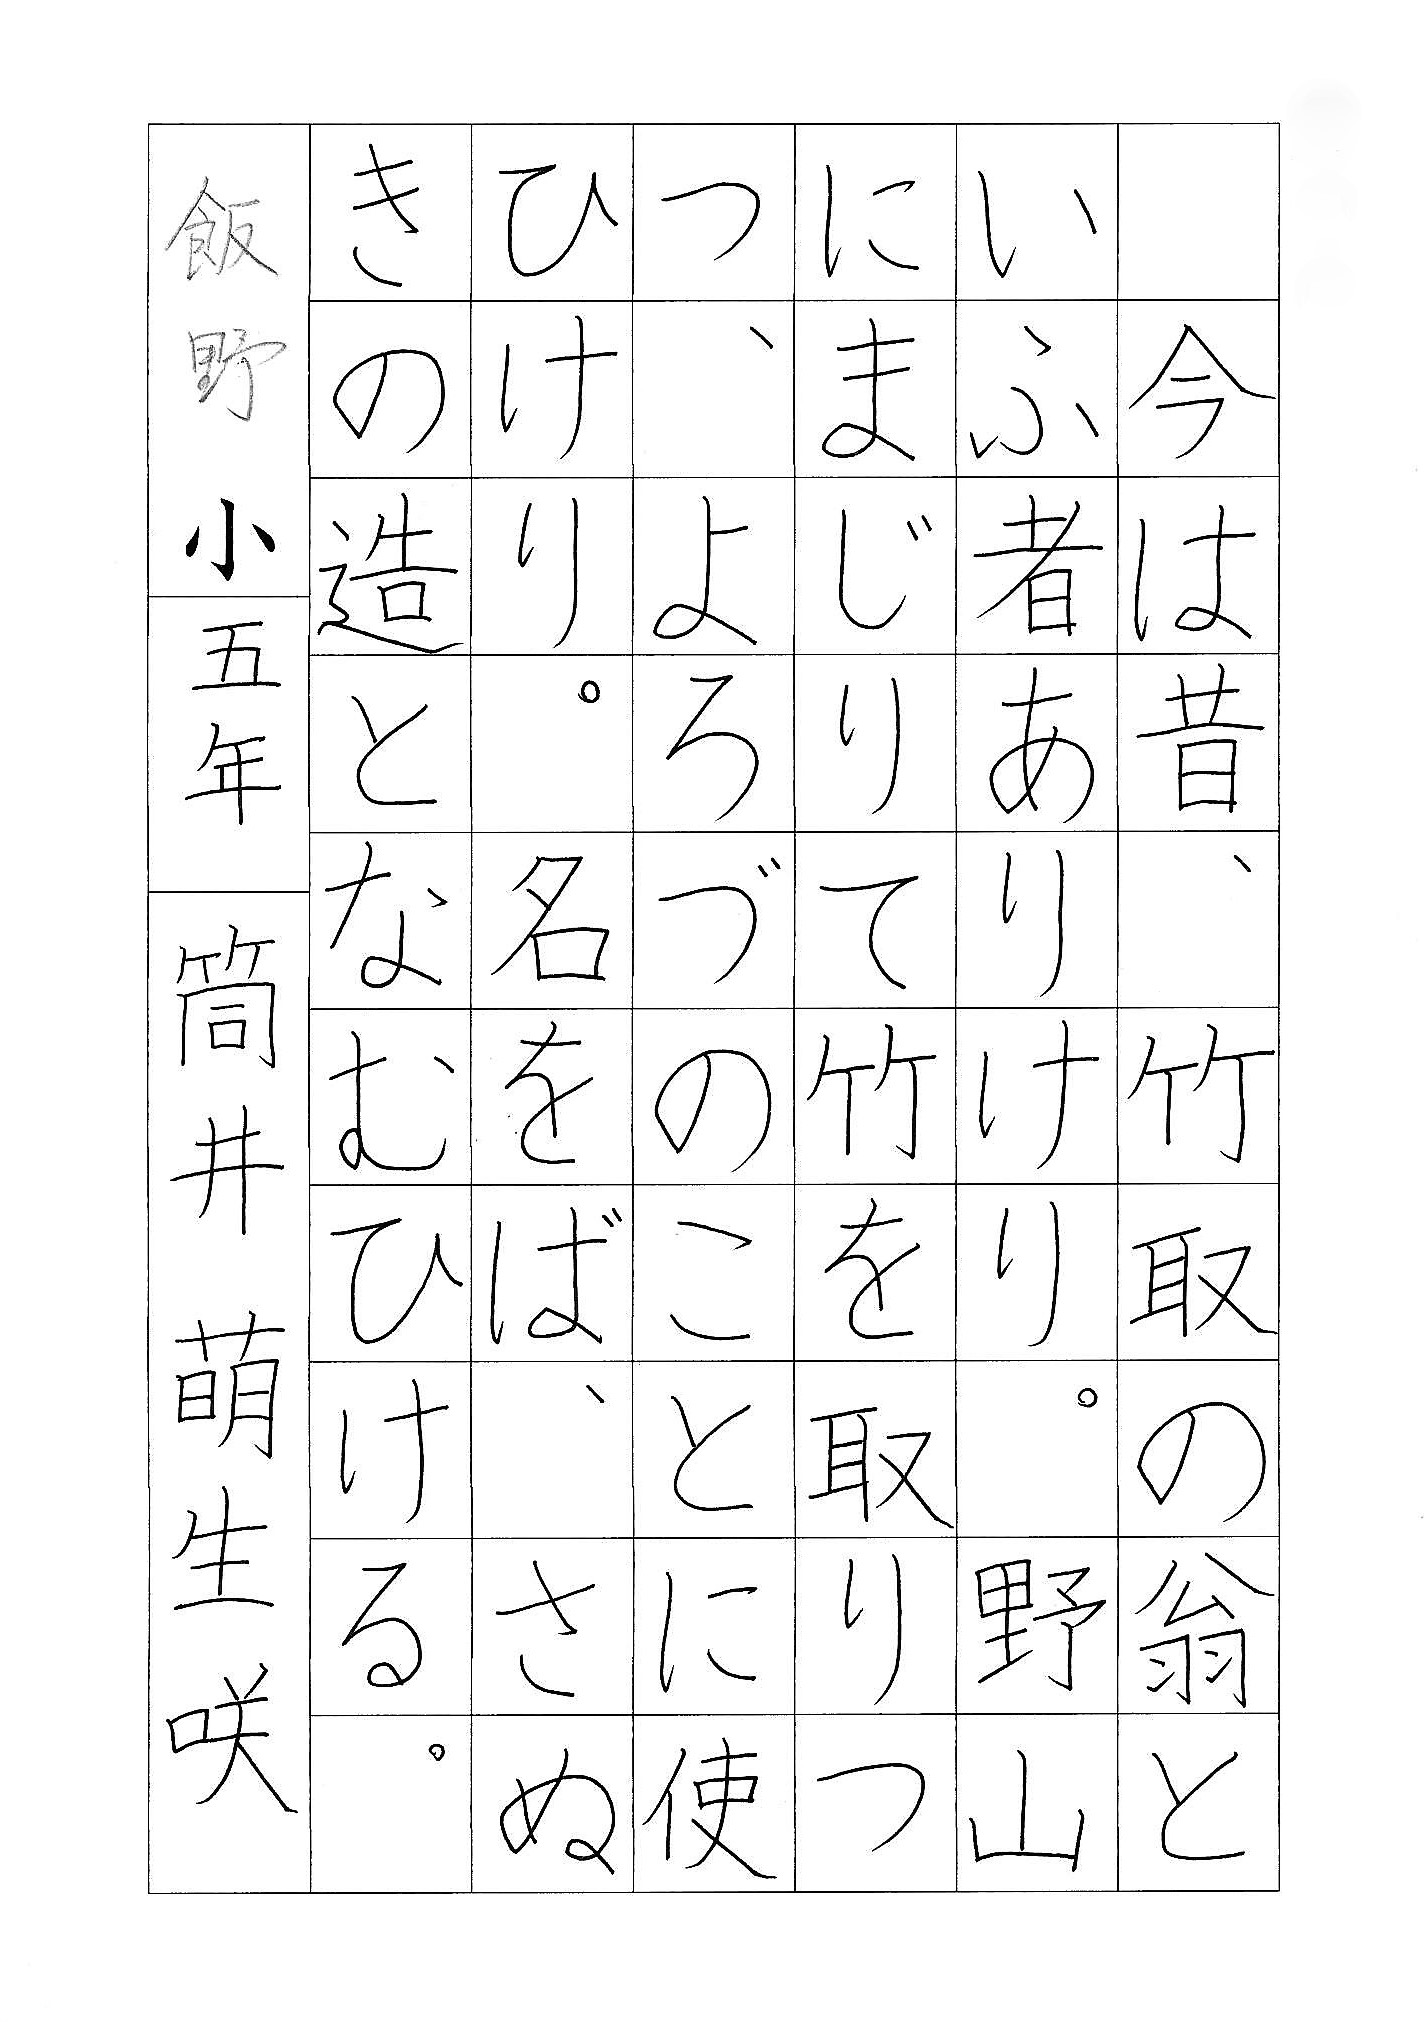 今は昔、竹取の翁と
いふ者ありけり。野山
にまじりて竹を取りつ
つ、よろづのことに使
ひけり。名をば、さぬ
きの造となむひける。
飯野小 五年 筒井萌生咲